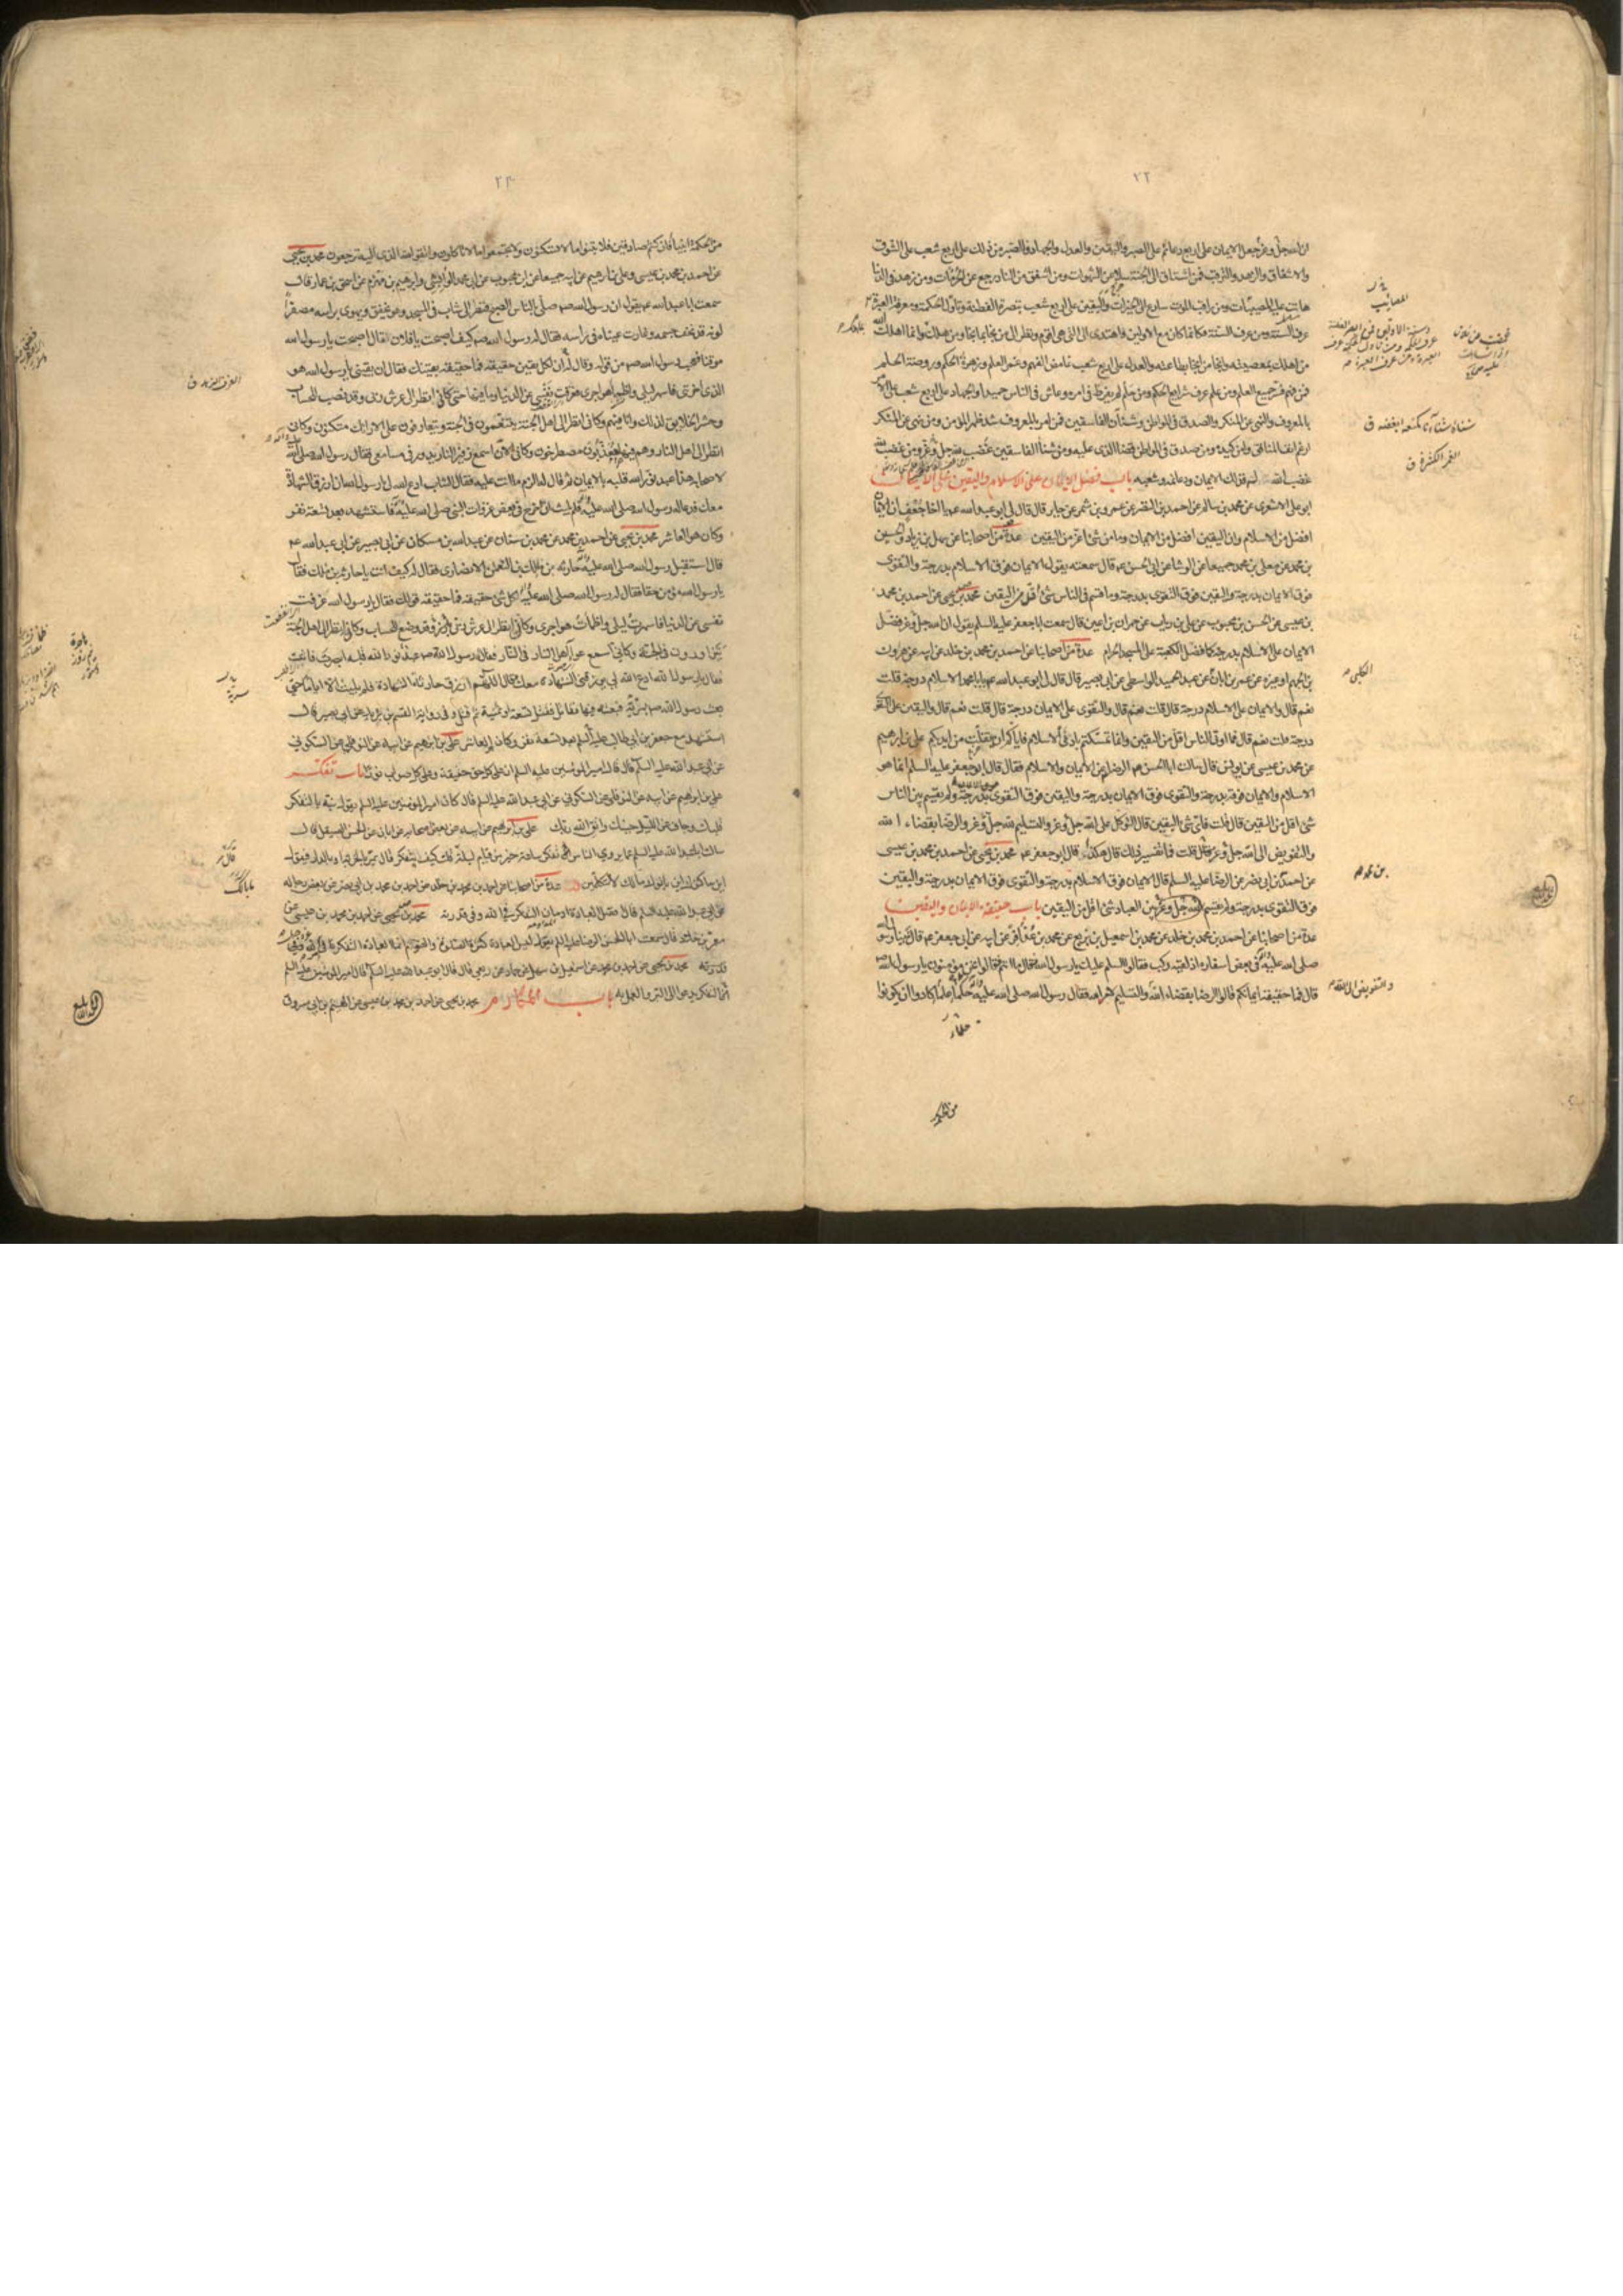 ٢٢
ان الله جل وعز جعل الايمان على اربع دعائم على الصبر واليقين والعدل والجهاد فالصبر من ذلك على اربع شعب على الشوق
والاشفاق والزهد والترقب فمن اشتاق الى الجنة سلا عن الشهوات ومن اشفق من النار رجع عن المحرمات ومن زهد فى الدنيا
هانت عليه المصيبات ومن راقب الموت سارع الى الخيرات واليقين على اربع شعب تبصرة الفطنة وتاول الحكمة ومعرفة العبرة
عرف السنة ومن عرف السنة فكانما كان مع الاولين واهتدى الى التى هى اقوم ونظر الى من نجا بما نجا ومن هلك بما هلك وانما اهلك الله
من اهلك بمعصيته وانجا من انجا بطاعته والعدل على اربع شعب غامض الفهم وغمر العلم وزهرة الحكم وروضة الحلم
فمن فهم فسر جميع العلم ومن علم عرف شرايع الحكم ومن حلم لم يفرط فى امره وعاش فى الناس حميدا والجهاد على اربع شعب على الامر
بالمعروف والنهى عن المنكر والصدق فى المواطن وشنان الفاسقين فمن امر بالمعروف شد ظهر المومن ومن نهى عن المنكر
ارغم انف المنافق وامن كيده ومن صدق فى المواطن قضا الذى عليه ومن شنأ الفاسقين غضب لله جل وعز ومن غضب لله
غضب الله له فذلك الايمان ودعائمه وشعبه باب فضل الايمان على الاسلام واليقين على الايمان
ابو على الاشعرى عن محمد بن سالم عن احمد بن النضر عن عمرو بن شمر عن جابر قال قال لى ابو عبد الله عم يا اخا جعفى ان الايمان
افضل من الاسلام وان اليقين افضل من الايمان وما من شئ اعز من اليقين عدة من اصحابنا عن سهل بن زياد والحسين
بن محمد عن معلى بن محمد جميعا عن الوشا عن ابى الحسن عم قال سمعته يقول الايمان فوق الاسلام بدرجة والتقوى
فوق الايمان بدرجة واليقين فوق التقوى بدرجة وما قسم فى الناس شئ اقل من اليقين محمد بن يحيى عن احمد بن محمد
بن عيسى عن الحسن بن محبوب عن على بن رياب عن حمران بن اعين قال سمعت ابا جعفر عليه السلم يقول ان الله جل وعز فضل
الايمان على الاسلام بدرجة كما فضل الكعبة على المسجد الحرام عدة من اصحابنا عن احمد بن محمد بن خلد عن ابيه عن هرون
بن الجهم او غيره عن عمر بن ابان عن عبد الحميد الواسطى عن ابى بصير قال قال لى ابو عبد الله عم يا با محمد الاسلام درجة قلت
نعم قال والايمان على الاسلام درجة قال قلت نعم قال والتقوى على الايمان درجة قال قلت نعم قال واليقين على التقوى
درجة قلت نعم قال فما اوتى الناس اقل من اليقين وانما تمسكتم بادنى الاسلام فاياكم ان ينفلت من ايديكم على بن ابرهيم
عن محمد بن عيسى عن يونس قال سالت ابا الحسن الرضا عن الايمان والاسلام فقال قال ابو جعفر عليه السلم انما هو
الاسلام والايمان فوقه بدرجة والتقوى فوق الايمان بدرجة واليقين فوق التقوى بدرجة ولم يقسم بين الناس
شئ اقل من اليقين قال قلت فاى شئ اليقين قال التوكل على الله جل وعز والتسليم لله جل وعز والرضا بقضاء الله
والتفويض الى الله جل وعز قال قلت فما تفسير ذلك قال هكذا قال ابو جعفر عم محمد بن يحيى عن احمد بن محمد بن عيسى
عن احمد بن ابى نصر عن الرضا عليه السلم قال الايمان فوق الاسلام بدرجة والتقوى فوق الايمان بدرجة واليقين
فوق التقوى بدرجة ولم يقسم الله جل وعز بين العباد شئ اقل من اليقين باب حقيقة الايمان واليقين
عدة من اصحابنا عن احمد بن محمد بن خلد عن محمد بن اسمعيل بن بزيع عن محمد بن عذافر عن ابيه عن ابى جعفر عم قال بينا رسول الله
صلى الله عليه فى بعض اسفاره اذ لقيه ركب فقالوا السلم عليك يا رسول الله فقال ما انتم فقالوا نحن مومنون يا رسول الله
قال فما حقيقة ايمانكم قالوا الرضا بقضاء الله والتسليم لامر الله فقال رسول الله صلى الله عليه حكما علما كادوا ان يكونوا
علماء
من الحكمة
المصايب
شناه شنأ
الغمر الكثرة ق
الكلبى
بن محمد
والتفويض الى الله
٢٣
من الحكمة انبياء فان كنتم صادقين فلا تبنوا ما لا تسكنون ولا تجمعوا ما لا تاكلون واتقوا الله الذى اليه ترجعون محمد بن يحيى
عن احمد بن محمد بن عيسى وعلى بن ابرهيم عن ابيه جميعا عن ابن محبوب عن ابى محمد الوابشى وابرهيم بن مهزم عن اسحق بن عمار قال
سمعت ابا عبد الله عم يقول ان رسول الله صم صلى بالناس الصبح فنظر الى شاب فى المسجد وهو يخفق ويهوى براسه مصفرا
لونه قد نحف جسمه وغارت عيناه فى راسه فقال له رسول الله صم كيف اصبحت يا فلان فقال اصبحت يا رسول الله
موقنا فعجب رسول الله صم من قوله وقال له ان لكل يقين حقيقة فما حقيقة يقينك فقال ان يقينى يا رسول الله هو
الذى احزننى فاسهر ليلى واظمأ هواجرى فعزفت نفسى عن الدنيا وما فيها حتى كانى انظر الى عرش ربى وقد نصب للحساب
وحشر الخلايق لذلك وانا فيهم وكانى انظر الى اهل الجنة يتنعمون فى الجنة ويتعارفون على الارايك متكئون وكانى
انظر الى اهل النار وهم فيها معذبون مصطرخون وكانى الان اسمع زفير النار يدور فى مسامعى فقال رسول الله صلى الله عليه
لاصحابه هذا عبد نور الله قلبه بالايمان ثم قال له الزم ما انت عليه فقال الشاب ادع الله لى يا رسول الله ان ارزق الشهادة
معك فدعا له رسول الله صلى الله عليه فلم يلبث ان خرج فى بعض غزوات النبى صلى الله عليه فاستشهد بعد تسعة نفر
وكان هو العاشر محمد بن يحيى عن احمد بن محمد عن محمد بن سنان عن عبد الله بن مسكان عن ابى بصير عن ابى عبد الله عم
قال استقبل رسول الله صلى الله عليه حارثة بن مالك بن النعمن الانصارى فقال له كيف انت يا حارثة بن مالك فقال
يا رسول الله مومن حقا فقال له رسول الله صلى الله عليه لكل شئ حقيقة فما حقيقة قولك فقال يا رسول الله عزفت
نفسى عن الدنيا فاسهرت ليلى واظمأت هواجرى وكانى انظر الى عرش ربى وقد وضع للحساب وكانى انظر الى اهل الجنة
يتزاورون فى الجنة وكانى اسمع عواء اهل النار فى النار فقال رسول الله صم عبد نور الله قلبه ابصرت فاثبت
فقال يا رسول الله ادع الله لى ان يرزقنى الشهادة معك فقال اللهم ارزق حارثة الشهادة فلم يلبث الا اياما حتى
بعث رسول الله صم سرية فبعثه فيها فقاتل فقتل تسعة او ثمنية ثم قتل وفى رواية القسم بن بريد عن ابى بصير قال
استشهد مع جعفر بن ابى طالب عليه السلم بعد تسعة نفر وكان هو العاشر على بن ابرهيم عن ابيه عن النوفلى عن السكونى
عن ابى عبد الله عليه السلم قال قال امير المومنين عليه السلم ان على كل حق حقيقة وعلى كل صواب نورا باب تفكر
على بن ابرهيم عن ابيه عن النوفلى عن السكونى عن ابى عبد الله عليه السلم قال كان امير المومنين عليه السلم يقول نبه بالتفكر
قلبك وجاف عن الليل جنبك واتق الله ربك على بن ابرهيم عن ابيه عن بعض اصحابه عن ابان عن الحسن الصيقل قال
سالت ابا عبد الله عليه السلم عما يروى الناس تفكر ساعة خير من قيام ليلة قلت كيف يتفكر قال يمر بالخربة او بالدار فيقول
اين ساكنوك اين بانوك ما لك لا تتكلمين عدة من اصحابنا عن احمد بن محمد بن خلد عن احمد بن محمد بن ابى نصر عن بعض رجاله
عن ابى عبد الله عليه السلم قال افضل العبادة ادمان التفكر فى الله وفى قدرته محمد بن يحيى عن احمد بن محمد بن عيسى عن
معمر بن خلاد قال سمعت ابا الحسن الرضا عليه السلم يقول ليس العبادة كثرة الصلوة والصوم انما العبادة التفكر فى
قدرته محمد بن يحيى عن احمد بن محمد عن اسمعيل بن سهل عن حماد عن ربعى قال قال ابو عبد الله عليه السلم قال امير المومنين عليه السلم
ان التفكر يدعو الى البر والعمل به باب المكارم محمد بن يحيى عن احمد بن محمد بن عيسى عن الهيثم بن ابى مسروق
سرية